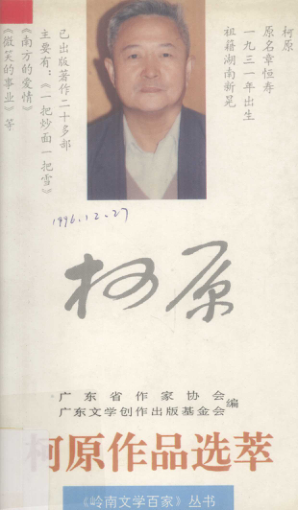 柯原
原名章恒寿
一九三一年出生
祖籍湖南新晃
已出版著作二十多部
主要有：《一把炒面一把雪》
《南方的爱情》
《微笑的事业》等
1996.12.27
柯原
广东省作家协会
广东文学创作出版基金会
编
柯原作品选萃
《岭南文学百家》丛书